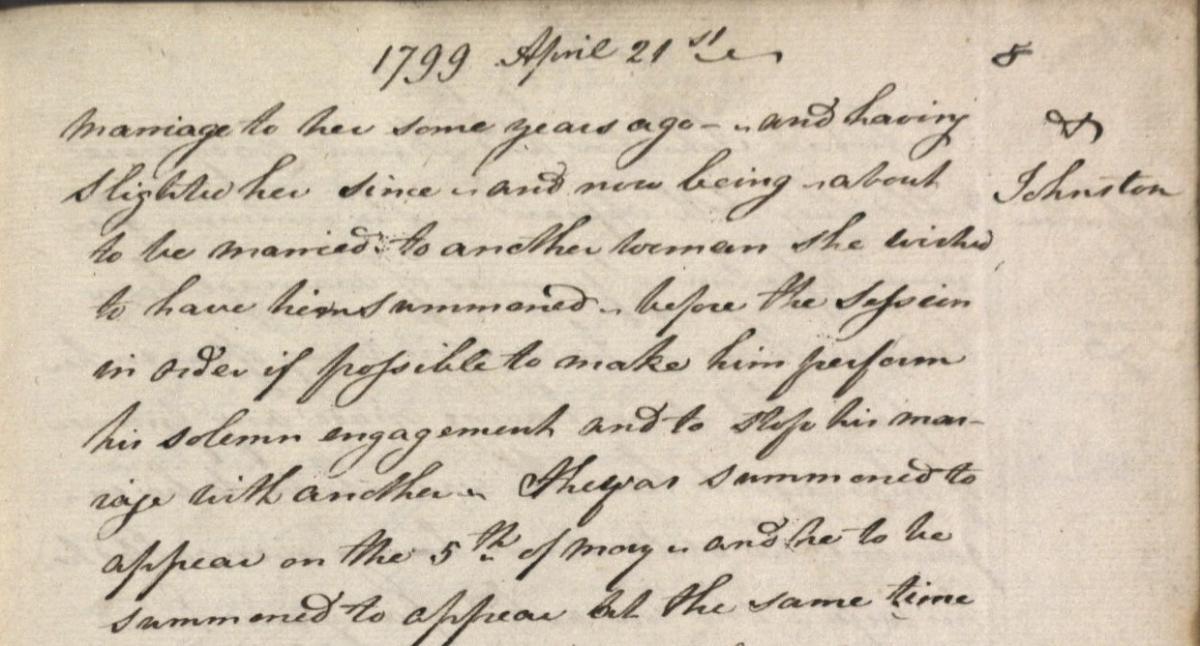 1799 April 21st 8
marriage to her some years ago - and having
&
slighted her since and now being about
Johnston
to be married to another woman she wished
to have him summoned before the Session
in order if possible to make him perform
his solemn engagement and to stop his mar-
iage with another She was summoned to
appear on the 5th of May and he to be
summoned to appear at the same time